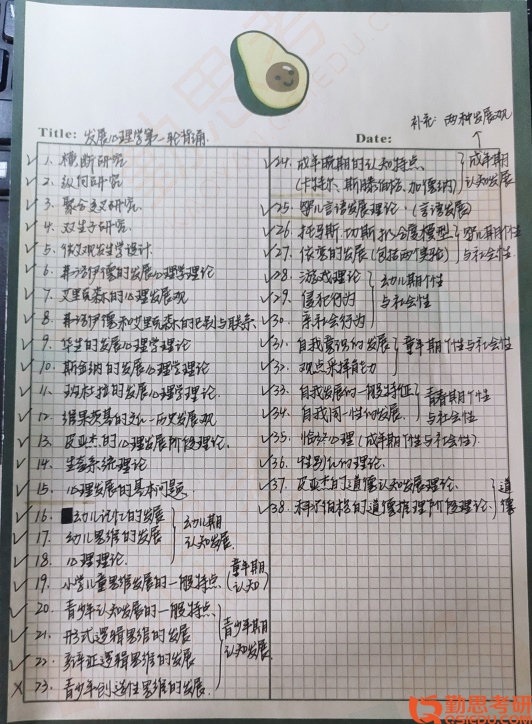 补充: 两种发展观
Title: 发展心理学第一轮背诵
Date:
✓ 1. 横断研究
✓ 2. 纵向研究
✓ 3. 聚合交叉研究
✓ 4. 双生子研究
✓ 5. 微观发生学设计
✓ 6. 弗洛伊德的发展心理学理论
✓ 7. 艾里克森的心理发展观
✓ 8. 弗洛伊德和艾里克森的区别与联系
✓ 9. 华生的发展心理学理论
✓ 10. 斯金纳的发展心理学理论
✓ 11. 班杜拉的发展心理学理论
✓ 12. 维果茨基的文化-历史发展观
✓ 13. 皮亚杰的心理发展阶段理论
✓ 14. 生态系统理论
✓ 15. 心理发展的基本问题
✓ 16. 幼儿记忆的发展
✓ 17. 幼儿思维的发展
✓ 18. 心理理论
幼儿期
认知发展
✓ 19. 小学儿童思维发展的一般特点 (童年期
认知)
✓ 20. 青少年认知发展的一般特点
✓ 21. 形式逻辑思维的发展
✓ 22. 辩证逻辑思维的发展
× 23. 青少年创造性思维的发展
青少年期
认知发展
✓ 24. 成年晚期的认知特点
(卡特尔、斯腾伯格、加德纳)
成年期
认知发展
✓ 25. 婴儿言语发展理论 (言语发展)
✓ 26. 托马斯、切斯拟合度模型
✓ 27. 依恋的发展 (包括两个理论)
婴儿期个性
与社会性
✓ 28. 游戏理论
✓ 29. 侵犯行为
✓ 30. 亲社会行为
幼儿期个性
与社会性
✓ 31. 自我意识的发展
✓ 32. 观点采择能力
童年期个性与社会性
✓ 33. 自我发展的一般特征
✓ 34. 自我同一性的发展
青春期个性
与社会性
✓ 35. 临终心理 (成年期个性与社会性)
✓ 36. 性别化的理论
✓ 37. 皮亚杰的道德认知发展理论
✓ 38. 科尔伯格的道德推理阶段理论
道德
勤思考研
QSIEDU.COM